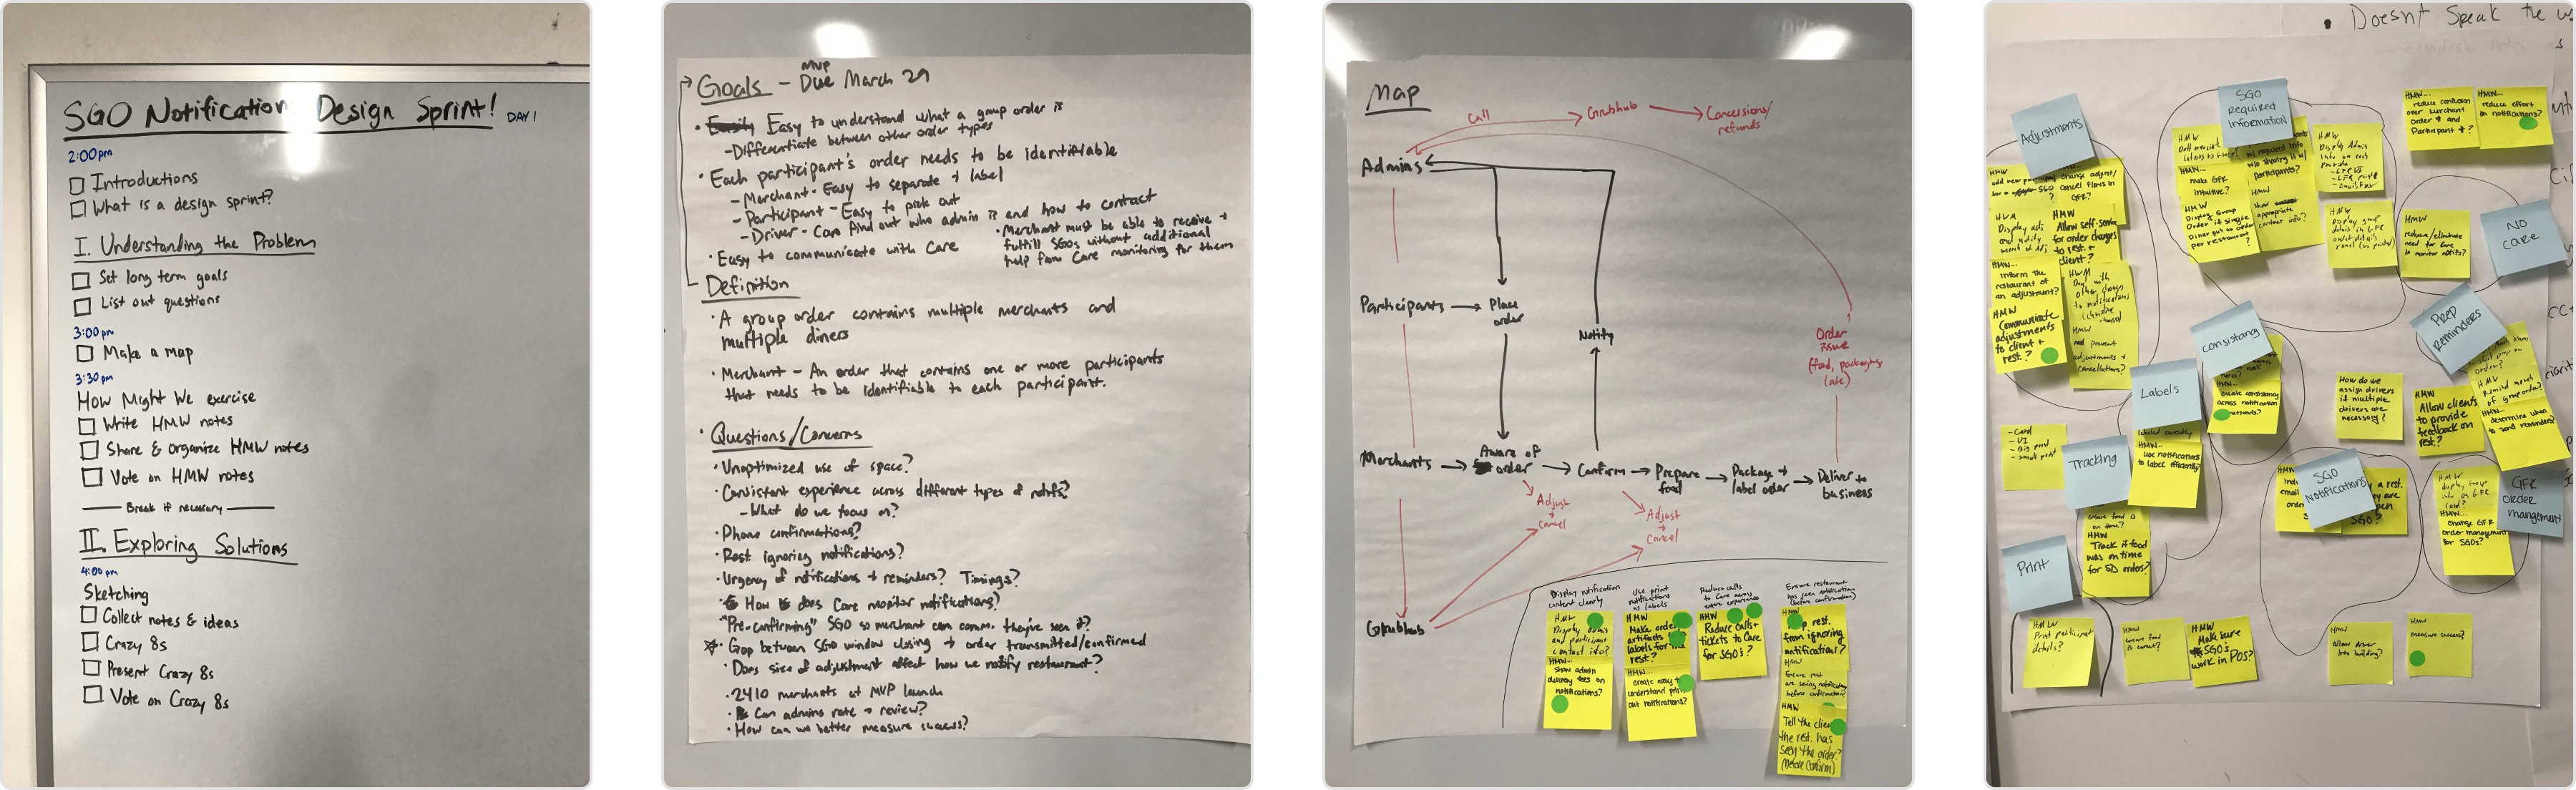 SGO Notification Design Sprint! DAY 1
2:00pm
Introductions
What is a design sprint?
I. Understanding the Problem
Set long term goals
List out questions
3:00pm
Make a map
3:30pm
How Might We exercise
Write HMW notes
Share & organize HMW notes
Vote on HMW notes
Break if necessary
II. Exploring Solutions
4:00pm
Sketching
Collect notes & ideas
Crazy 8s
Present Crazy 8s
Vote on Crazy 8s
Goals - MVP Due March 29
Easy to understand what a group order is
-Differentiate between other order types
Each participant's order needs to be identifiable
- Merchant - Easy to separate + label
- Participant - Easy to pick out
- Driver - Can find out who admin is and how to contact
Easy to communicate with Care
Merchant must be able to receive +
fulfill SGOs without additional
help from Care monitoring for them
Definition
A group order contains multiple merchants and
multiple diners
Merchant - An order that contains one or more participants
that needs to be identifiable to each participant.
Questions/Concerns
Unoptimized use of space?
Consistent experience across different types of notifs?
- What do we focus on?
Phone confirmations?
Rest ignoring notifications?
Urgency of notifications + reminders? Timings?
How does Care monitor notifications?
"Pre-confirming" SGO so merchant can comm. they've seen it?
Gap between SGO window closing + order transmitted/confirmed
Does size of adjustment affect how we notify restaurant?
2410 merchants at MVP launch
Can admins rate + review?
How can we better measure success?
Map
Call
Grubhub
Concessions/
refunds
Admins
Participants
Place
order
Notify
Order
issue
(food, packaging,
late)
Merchants
Aware of
order
Confirm
Prepare
food
Package +
label order
Deliver to
business
Adjust
+
Cancel
Adjust
+
Cancel
Grubhub
Display notification
content clearly
Use print
notifications
as labels
Reduce calls
to Care across
entire experience
Ensure restaurant
has seen notification
(before confirmation)
HMW
Display admin
and participant
contact info?
HMW...
show admin
delivery fees on
notifications?
HMW
Make order
artifacts
labels for
rest.?
HMW
create easy to
understand print
out notifications?
HMW
Reduce calls +
tickets to Care
for SGO's?
HMW
rest.
from ignoring
notifications?
HMW
Ensure rest
are seeing notifications
before confirmation?
HMW
Tell the client
the rest. has
seen the order?
(Before Confirm)
Doesn't Speak the
Adjustments
SGO
Required
Information
HMW...
reduce confusion
over Merchant
Order # and
Participant #?
HMW...
reduce effort
on notifications?
NO
Care
HMW
reduce/eliminate
need for Care
to monitor notifs?
HMW
Allow self-serve
for order changes
to rest. +
client?
HMW...
inform the
restaurant of
an adjustment?
HMW
Communicate
adjustments
to client +
rest.?
HMW...
make GFR
intuitive?
HMW
Display Group
Order if single
Diner put in order
per restaurant?
Consistency
Prep
Reminders
Labels
HMW...
create consistency
across notification
How do we
assign drivers
if multiple
drivers are
necessary?
HMW
Allow clients
to provide
feedback on
rest.?
HMW...
determine when
to send reminders?
Tracking
HMW...
use notifications
to label efficiently?
SGO
Notifications
GFR
order
mangement
HMW...
change GFR
order management
for SGOs?
Print
ensure food is
on time?
HMW
Track if food
was on time
for SD orders?
HMW
Print participant
details?
HMW
ensure food
is correct?
HMW
Make sure
SGOs
work in POS?
HMW
allow driver
into building?
HMW
measure success?